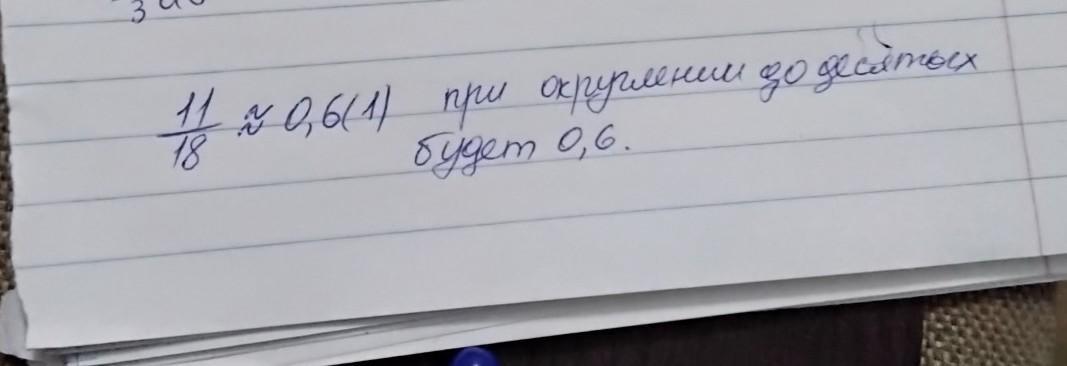 11/18 ≈ 0,6(1) при округлении до десятых
будет 0,6.